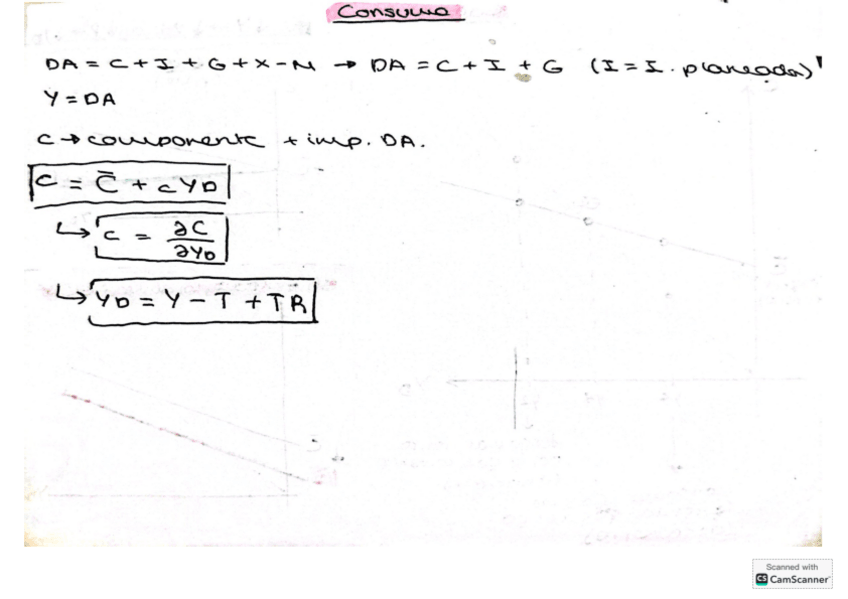 Consumo
DA = C + I + G + X - M → DA = C + I + G (I = I. planeada)
Y = DA
C → componente + imp. DA.
C = C̄ + cYD
↳ c = ∂C/∂YD
↳ YD = Y - T + TR
Scanned with
CS CamScanner